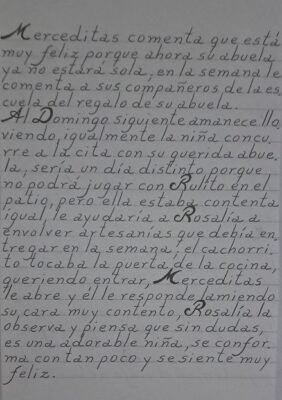 Merceditas comenta que está
muy feliz porque ahora su abuela
ya no estará sola, en la semana le
comenta a sus compañeros de la es
cuela del regalo de su abuela.
Al Domingo siguiente amanece llo
viendo, igualmente la niña concu
rre a la cita con su querida abue
la, sería un día distinto porque
no podrá jugar con Rulito en el
patio, pero ella estaba contenta
igual, le ayudaría a Rosalía a
envolver artesanías que debía en
tregar en la semana; el cachorri
to tocaba la puerta de la cocina,
queriendo entrar, Merceditas
le abre y él le responde lamiendo
su cara muy contento, Rosalía la
observa y piensa que sin dudas,
es una adorable niña, se confor
ma con tan poco y se siente muy
feliz.